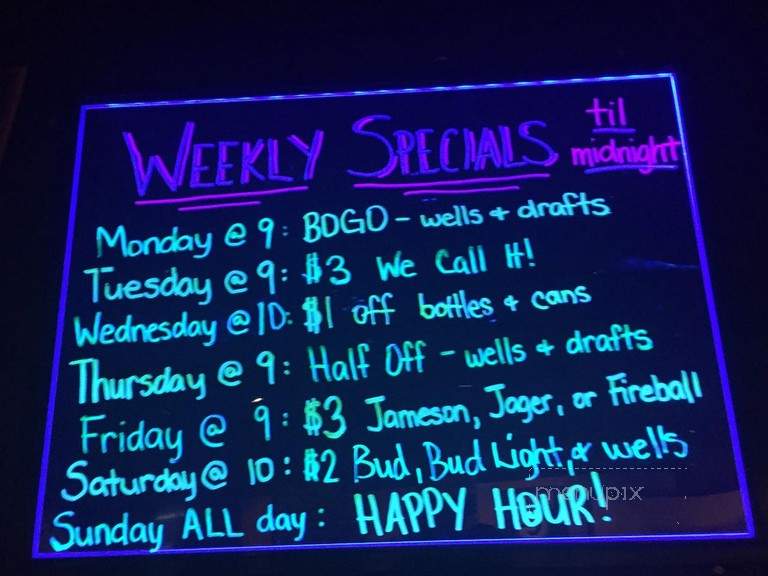 WEEKLY SPECIALS til midnight
Monday @ 9: BOGO - wells & drafts
Tuesday @ 9: $3 We Call It!
Wednesday @ 10: $1 off bottles & cans
Thursday @ 9: Half Off - wells & drafts
Friday @ 9: $3 Jameson, Jager, or Fireball
Saturday @ 10: $2 Bud, Bud Light, & wells
menupix
Sunday ALL day: HAPPY HOUR!